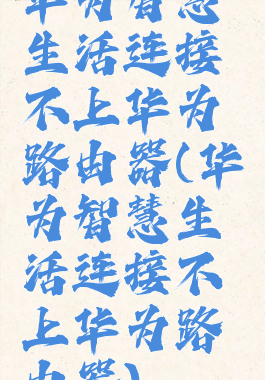 华为智慧
生活连接
不上华为
路由器(华
为智慧生
活连接不
上华为路
由器)